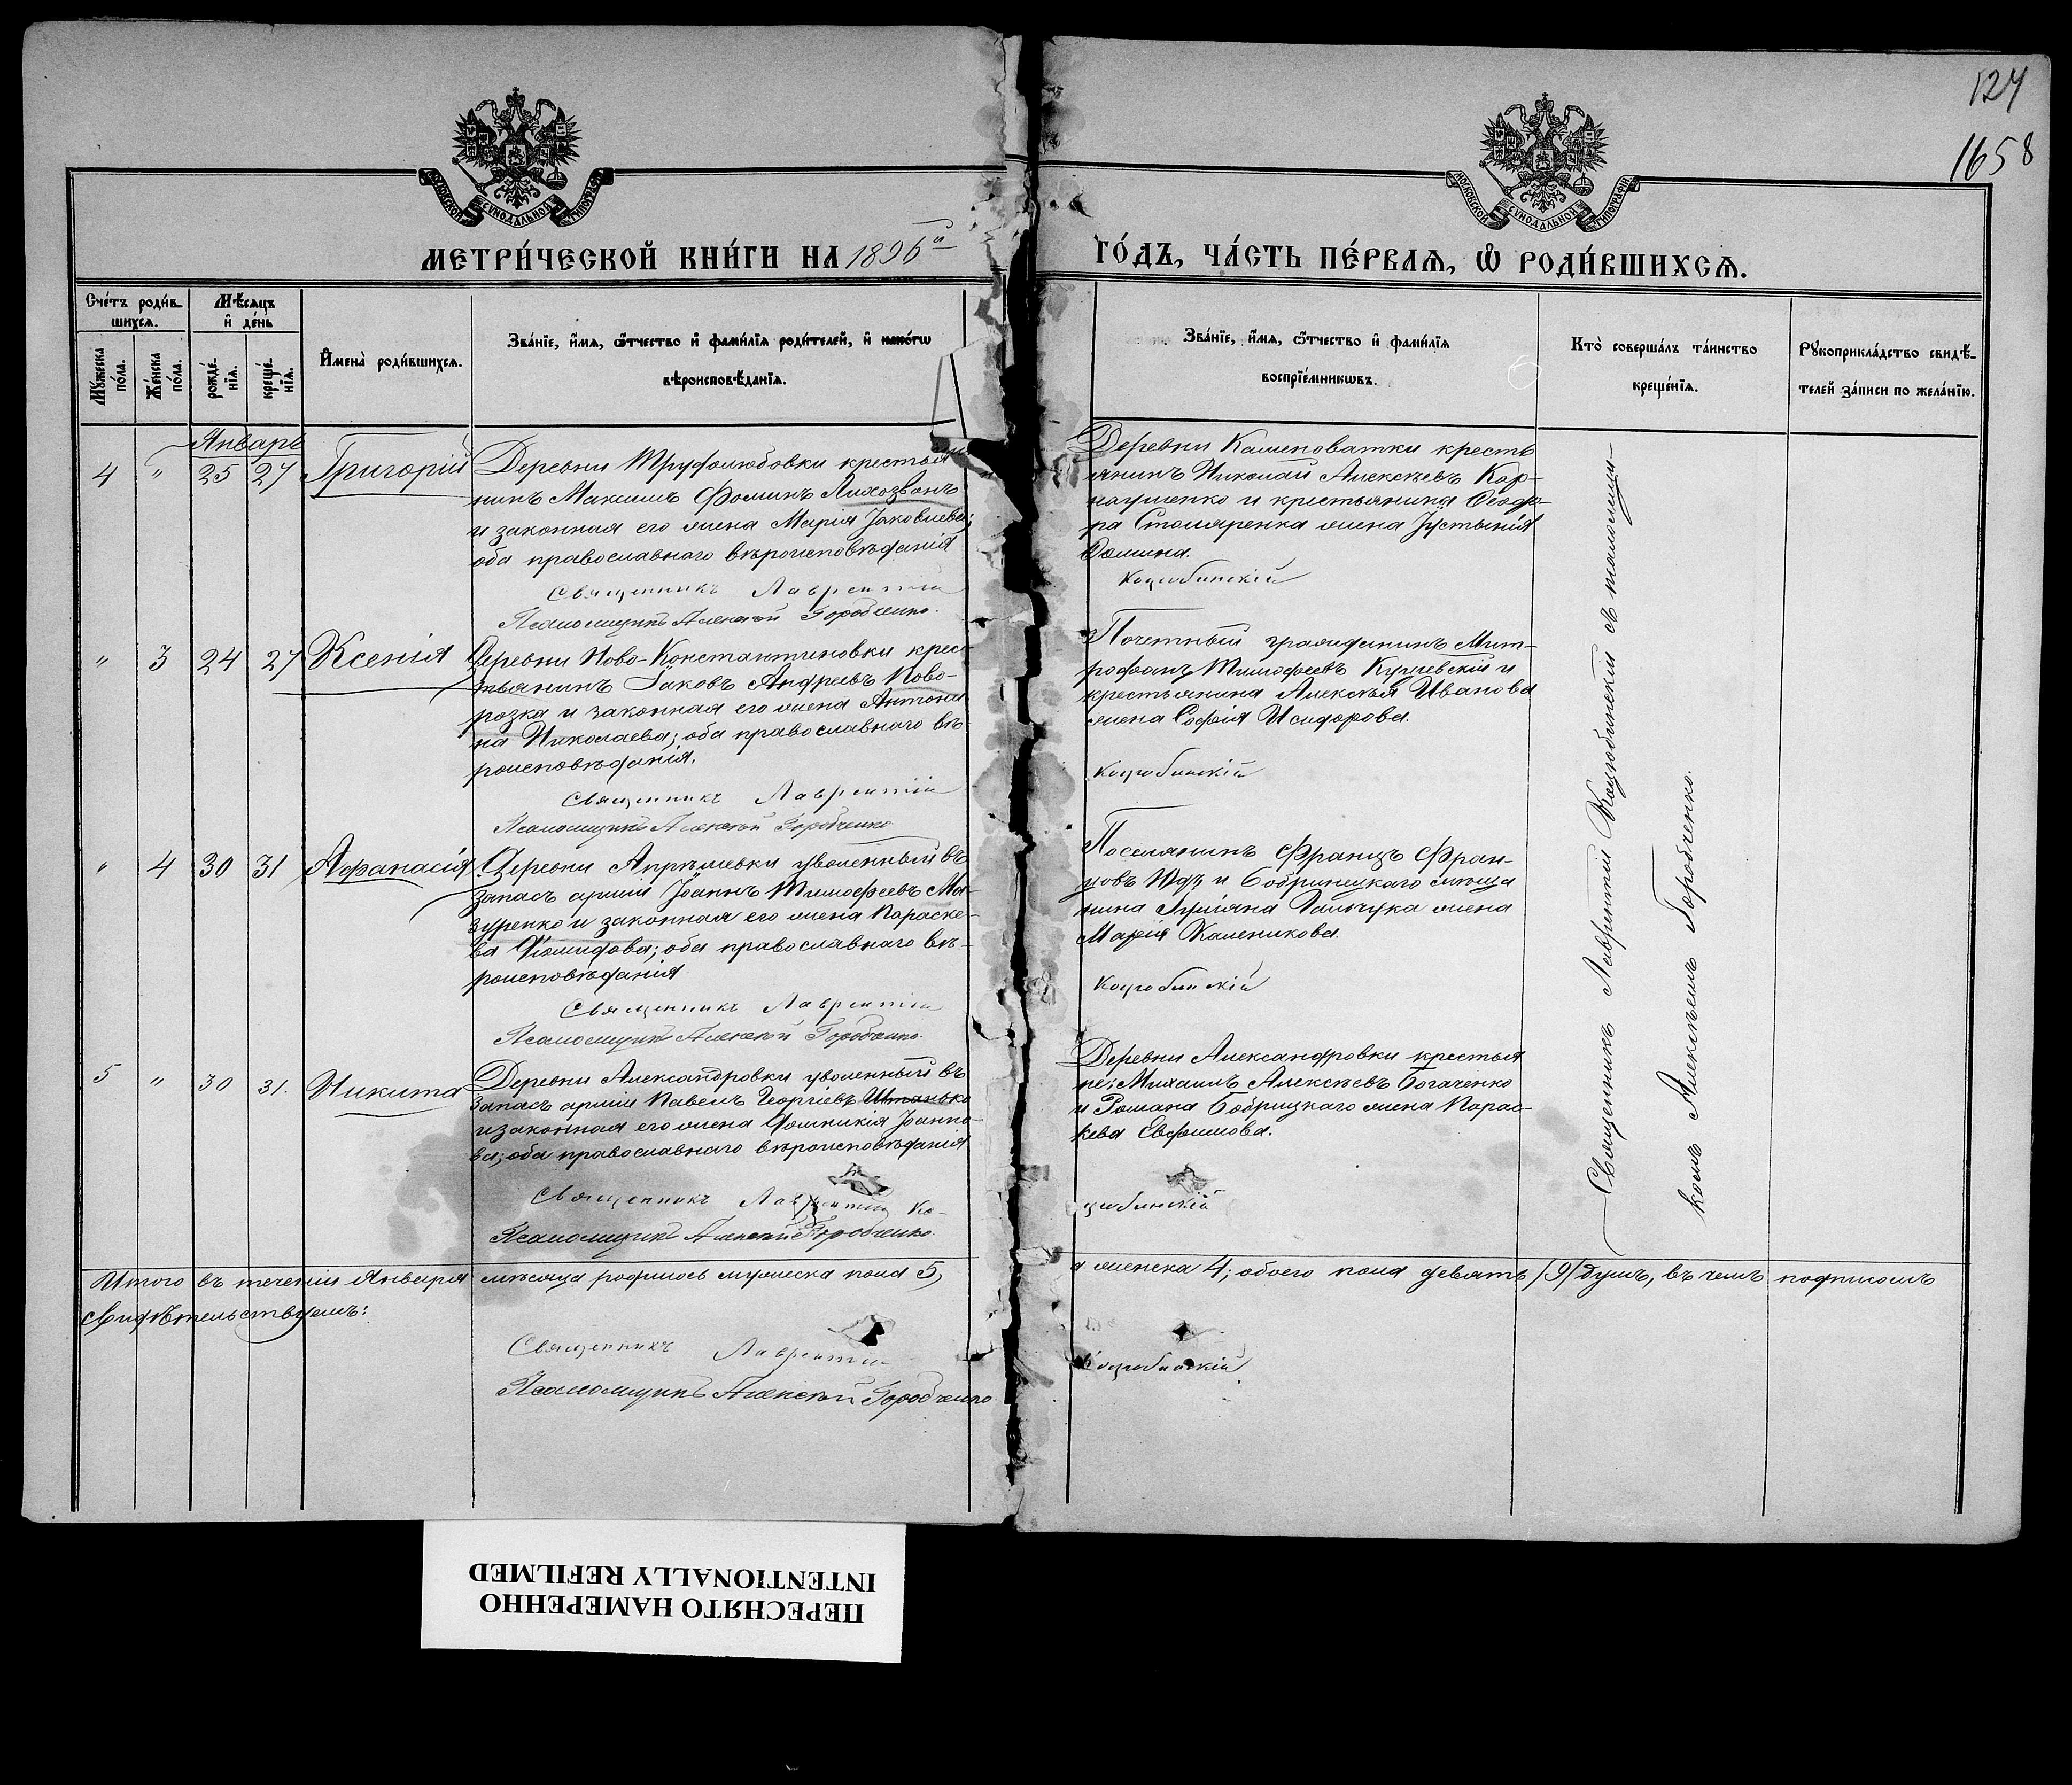 124
1658
МОСКОВСКОЙ СѴНОДАЛЬНОЙ ТИПОГРАФІИ
МОСКОВСКОЙ СѴНОДАЛЬНОЙ ТИПОГРАФІИ
МЕТРИ́ЧЕСКОЙ КНИ́ГИ НА 1896й
ГО́ДЪ, ЧА́СТЬ ПЕ́РВАѦ, Ѡ РОДИ́ВШИХСѦ.
Сче́тъ роди́в-
шихсѧ.
Мѣ́сѧцъ
и де́нь
Мꙋ́жеска
по́ла.
Же́нска
по́ла.
рожде́-
нїѧ.
креще́-
нїѧ.
И́мена̀ роди́вшихсѧ.
Зва́нїе, и́мѧ, ѻ́тчество и фами́лїѧ роди́телей, и како́гѡ
вѣроисповѣ́данїѧ.
Зва́нїе, и́мѧ, ѻ́тчество и фами́лїѧ
воспрїе́мникѡвъ.
Кто̀ соверша́лъ та́инство
креще́нїѧ.
Рꙋкоприкла́дство свидѣ́-
телей за́писи по жела́нїю.
Январь
4 " 25 27 Григорій
Деревни Труфолюбовки крестья
нинъ Максимъ Фоминъ Лихозвонъ
и законная его жена Марія Іаковлева;
оба православнаго вѣроисповѣданія
Священникъ Лаврентій
Псаломщикъ Алексѣй Горобченко.
Деревни Каменоватки кресть
янинъ Николай Алексѣевъ Кар-
наушенко и крестьянина Ѳеодо-
ра Столяренка жена Іустинія
Ѳомина.
Коцюбинскій
" 3 24 27 Ксенія
Деревни Ново-Константиновки крес-
тьянинъ Іаковъ Андреевъ Ково-
розка и законная его жена Антони
на Николаева; оба православнаго вѣ-
роисповѣданія.
Священникъ Лаврентій
Псаломщикъ Алексѣй Горобченко
Почетный гражданинъ Мит-
рофанъ Тимофеевъ и
крестьянина Алексѣя Иванова
жена Софія Исидорова.
Коцюбинскій
" 4 30 31 Афанасія
Деревни Апрѣлевки уволенный въ
запасъ арміи Іоаннъ Тимофеевъ Ма-
зуренко и законная его жена Параске-
ва Діомидова; оба православнаго вѣ-
роисповѣданія
Священникъ Лаврентій
Псаломщикъ Алексѣй Горобченко.
Поселянинъ Францъ Фран-
цовъ и Бобринецкаго мѣща
нина Гальчука жена
Марія Каленикова.
Коцюбинскій
5 " 30 31. Никита
Деревни Александровки уволенный въ
запасъ арміи Павелъ Георгіевъ Штанько
и законная его жена Домникія Іоанно-
ва; оба православнаго вѣроисповѣданія
Священникъ Лаврентій Ко-
Псаломщикъ Алексѣй Горобченко.
Деревни Александровки крестья
не: Михаилъ Алексѣевъ Богаченко
и Романа Бобрицкаго жена Парас-
кева Евфимова.
цюбинскій
Священникъ Лаврентій Коцюбинскій съ псаломщи-
комъ Алексѣемъ Горобченко.
Итого въ теченіи Января мѣсяца родилось мужеска пола 5,
и женска 4; обоего пола девять /9/ душъ, въ чемъ подписомъ
свидѣтельствуемъ:
Священникъ Лаврентій
Коцюбинскій
Псаломщикъ Алексѣй Горобченко
ПЕРЕСНЯТО НАМЕРЕННО
INTENTIONALLY REFILMED